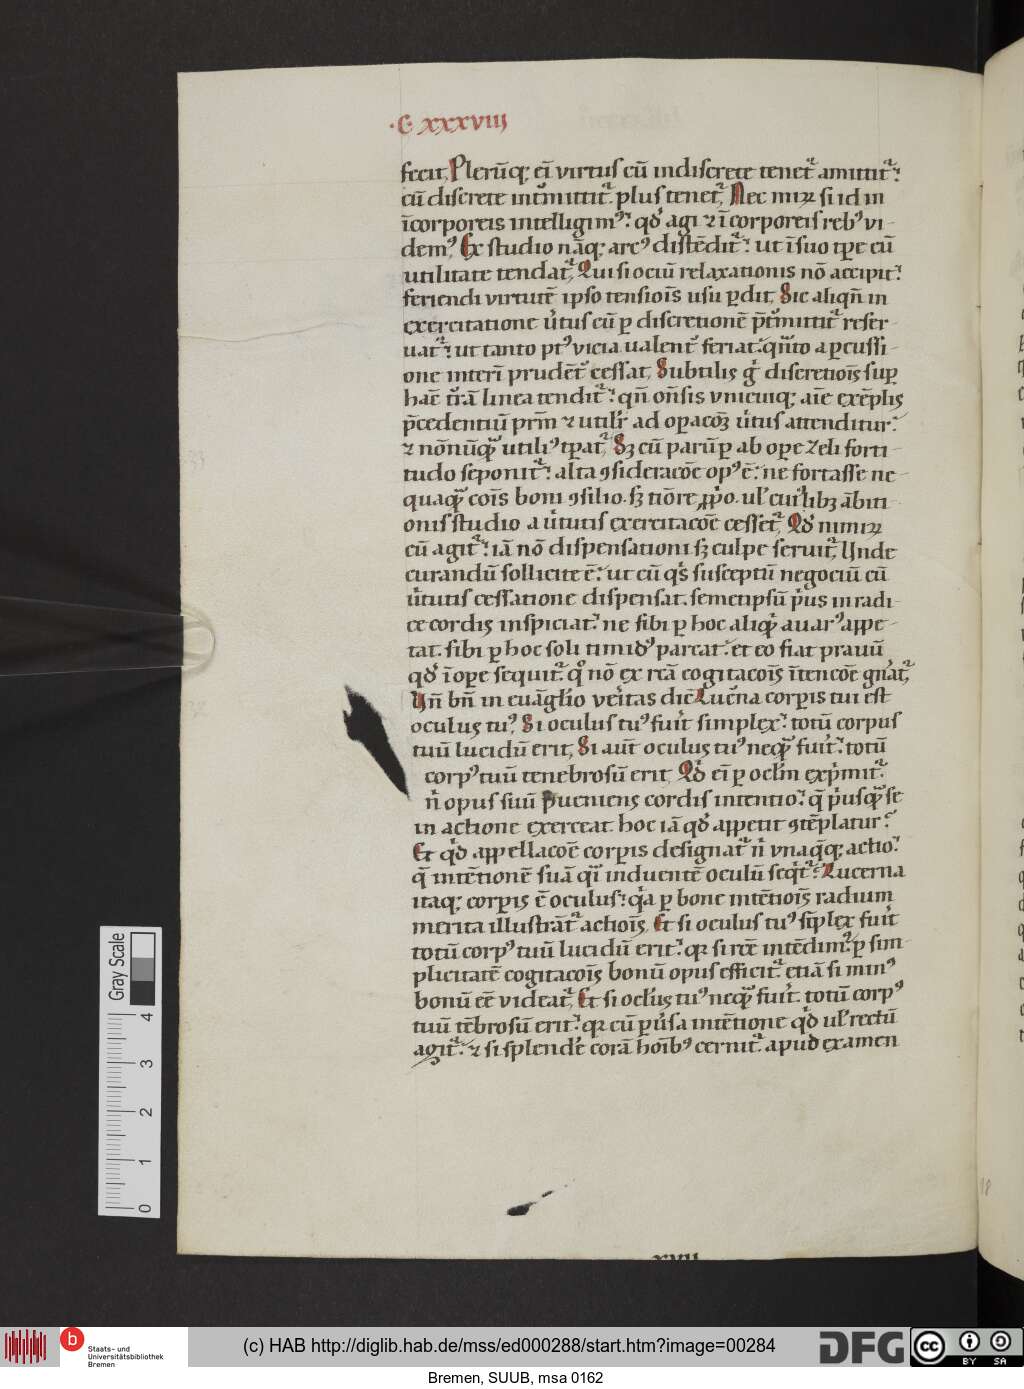 ·C· xxxviii
fecit, Plerūq; eī virtus cū indiscrete tenet᷑ amittit᷑:
cū discrete int᷑mittit᷑. plus tenet᷑, Nec miꝝ si id in
īcorporeis intelligimꝰ: qd̓ agi ⁊ ī corporeis rebꝰ vi-
demꝰ, Ex studio nāq; arcꝰ distēdit᷑: ut ī suo tꝑe cū
utilitate tendat᷑, Qui si ociū relaxationis nō accipit:
feriendi virtutē ipso tensiois̄ usu ꝑdit, Sic aliqn̄ in
exercitatione v̓tus cū ꝑ discretionē p̄t᷑mittit᷑ reser-
uat᷑: ut tanto ptꝰ vicia ualent᷑ feriat: qn̄to a ꝑcussi-
one interī prudēt᷑ cessat, Subtilis g̓ discretiois̄ suꝑ
haē t᷑rā linea tendit᷑: qn̄ on̄sis vnicuiq; aīe exēplis
p̄cedentiū prm̄ ⁊ utilir̓ ad oꝑacoꝫ v̓tus attenditur:
⁊ nōnūq̄ꝫ utiliꝰ tꝑat᷑, Sꝫ cū parūꝑ ab oꝑe zeli forti-
tudo seponit᷑: alta ꝯsideracoē opꝰ ē: ne fortasse ne-
quaq̄ꝫ cois̄ boni ꝯsilio. sꝫ tiōre ꝓpͥo. ul̓ cuiꝰlibꝫ ābiti-
onis studio a v̓tutis exercitacoē cesset᷑, Qd̓ nimiꝝ
cū agit᷑: iā nō dispensationi sꝫ culpe seruit᷑, Unde
curandū sollicite ē: ut cū qͥs susceptū negociū cū
v̓tutis cessatione dispensat. semetipsū pͥus in radi-
ce cordis inspiciat: ne sibi ꝑ hoc aliqͥd auarꝰ appe-
tat. sibi ꝑ hoc soli timidꝰ parcat: et eo fiat prauū
qd̓ ī oꝑe sequit᷑. qͦ nō ex rcā cogitacois̄ ītencoē gn̓at᷑,
Un̄ bn̄ in euāglio veritas diē Lucn̄a corꝑis tui est
oculus tuꝰ, Si oculus tuꝰ fuit̓ simplex: totū corpus
tuū lucidū erit, Si aut̄ oculus tuꝰ neq̄ꝫ fuit̓: totū
corpꝰ tuū tenebrosū erit, Qd̓ eī ꝑ oclm̓ expͥmit᷑.
n̓ opus suū p̄ueniens cordis intentio: q̄ pͥusq̄ꝫ se
in actione exerceat. hoc iā qd̓ appetit ꝯtēplatur:
Et qd̓ appellacoē corꝑis designat᷑ n̓ vnaq̄q; actio:
q̄ intētionē suā qͥ induentē oculū seqͥt᷑: Lucerna
itaq; corꝑis ē oculus: qͥa ꝑ bone intētiois̄ radium
merita illustrāt᷑ actiois̄, Et si oculus tuꝰ sīplex fuit̓
totū corpꝰ tuū lucidū erit: qꝛ si rcē intēdimꝰ. ꝑ sim-
plicitatē cogitacois̄ bonū opus efficit᷑. etiā si minꝰ
bonū eē videat᷑, Et si ocl̓us tuꝰ neq̄ꝫ fuit̓. totū corpꝰ
tuū tēbrosū erit: qꝛ cū ꝑv̓sa intētione qd̓ ul̓ rectū
agit᷑: ⁊ si splende᷑ corā hoīb̓ꝰ cernit᷑. apud examen
Gray Scale
4
3
2
1
0
b Staats- und
Universitätsbibliothek
Bremen
(c) HAB http://diglib.hab.de/mss/ed000288/start.htm?image=00284
DFG
cc BY SA
Bremen, SUUB, msa 0162